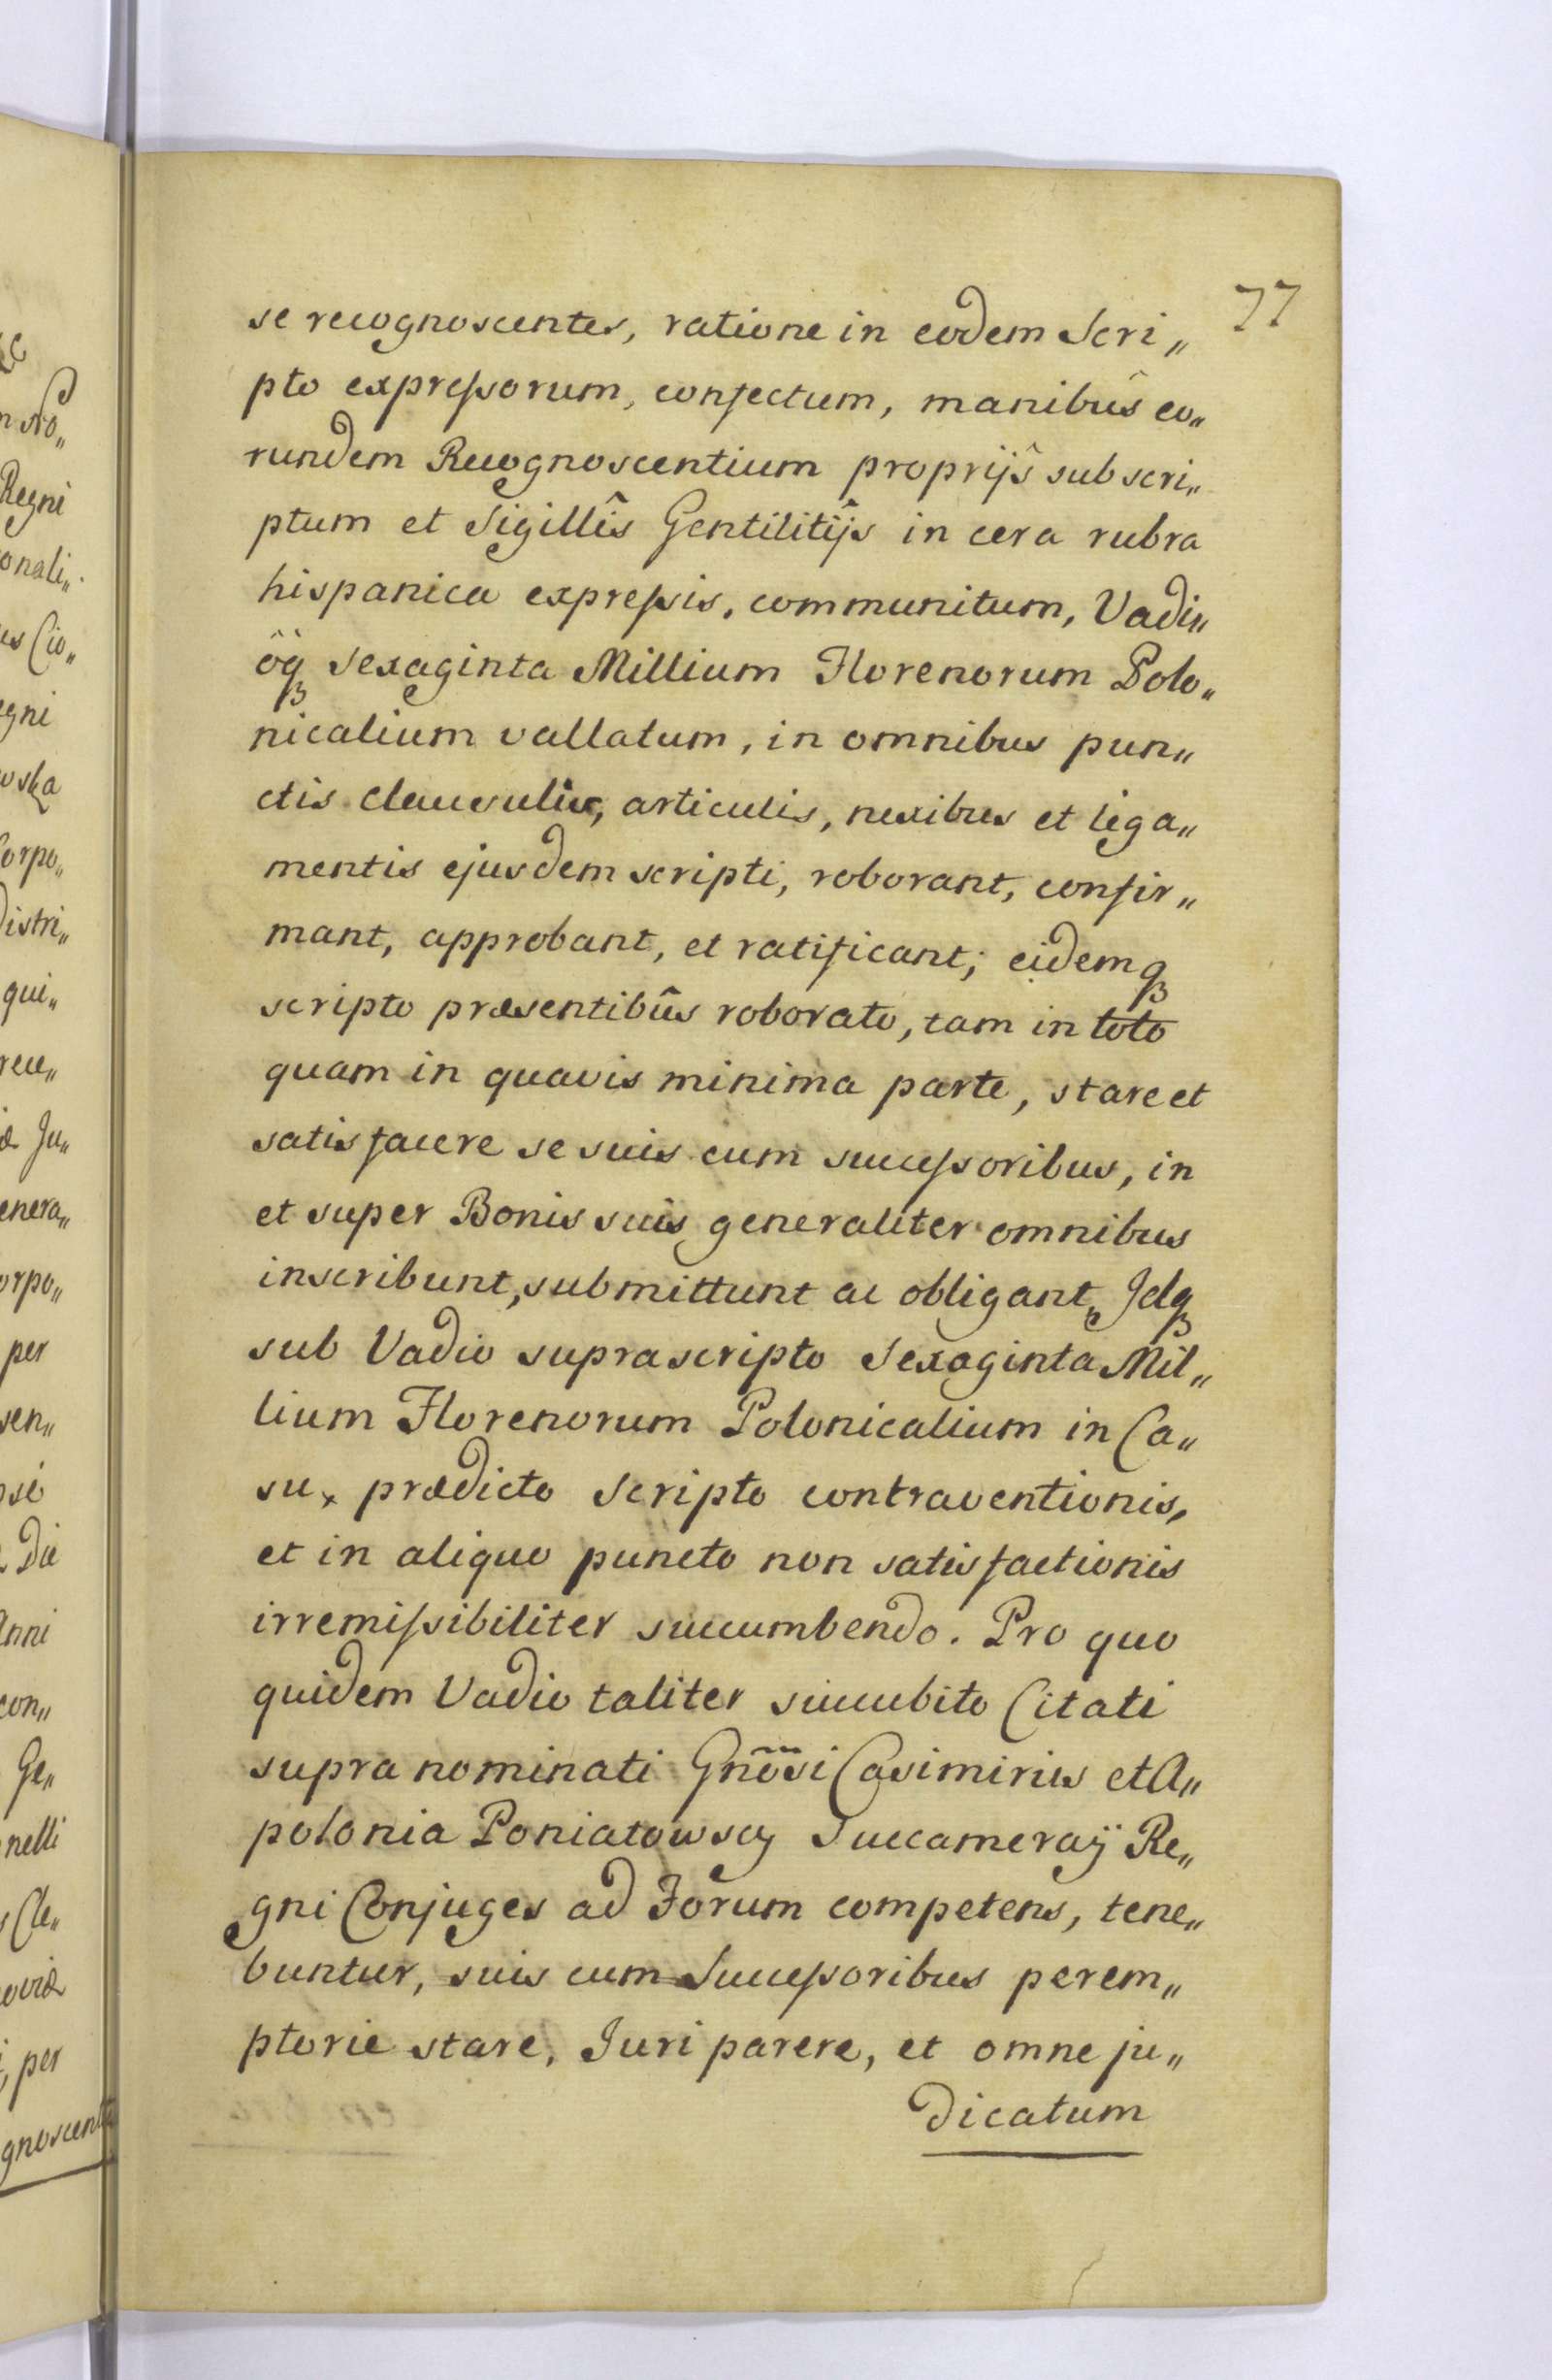 77
se recognoscentes, ratione in eodem Scri„
pto expressorum, confectum, manibûs eo„
rundem Recognoscentium proprijs subscri„
ptum et Sigillîs Gentilitijs in cera rubra
hispanica expressis, communitum, Vadi„
ôq₃ Sexaginta Millium Florenorum Polo„
nicalium vallatum, in omnibus pun„
ctis clausulis, articulis, nexibus et liga„
mentis ejusdem scripti, roborant, confir„
mant, approbant, et ratificant; eidemq₃
scripto præsentibûs roborato, tam in toto
quam in quavis minima parte, stare et
satisfacere se suis cum successoribus, in
et super Bonis suis generaliter omnibus
inscribunt, submittunt ac obligant„ Idq₃
sub Vadio suprascripto Sexaginta Mil„
lium Florenorum Polonicalium in Ca„
su, prædicto Scripto contraventionis,
et in aliquo puncto non satisfactionis
irremissibiliter succumbendo. Pro quo
quidem Vadio taliter succubito Citati
supra nominati Gnõsi Casimirus et A„
polonia Poniatowscy Succameraÿ Re„
gni Conjuges ad Forum competens, tene„
buntur, suis cum Successoribus perem„
ptorie stare, Juri parere, et omne ju„
dicatum
Regni
onali„
us Cio„
egni
wska
Corpo„
Distri„
qui„
rece„
æ Ju„
enera„
orpo„
per
sen„
Die
Anni
con„
Ge„
nelli
s Cle„
oviæ
per
gnoscente